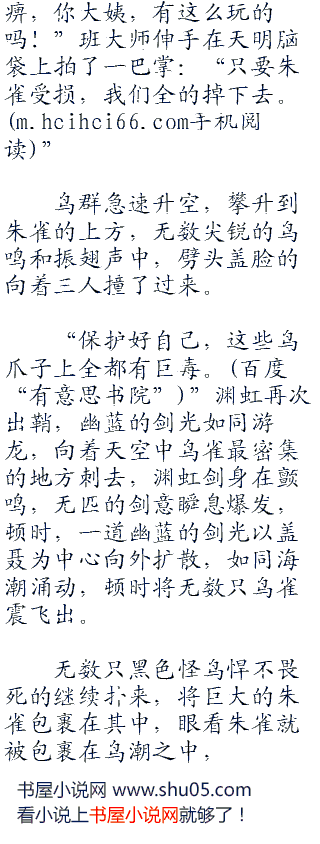 痹，你大姨，有这么玩的
吗！”班大师伸手在天明脑
袋上拍了一巴掌：“只要朱
雀受损，我们全的掉下去。
(m.hcihci66.com手机阅
读)”
鸟群急速升空，攀升到
朱雀的上方，无数尖锐的鸟
鸣和振翅声中，劈头盖脸的
向着三人撞了过来。
“保护好自己，这些鸟
爪子上全都有巨毒。(百度
“有意思书院”)”渊虹再次
出鞘，幽蓝的剑光如同游
龙，向着天空中鸟雀最密集
的地方刺去，渊虹剑身在颤
鸣，无匹的剑意瞬息爆发，
顿时，一道幽蓝的剑光以盖
聂为中心向外扩散，如同海
潮涌动，顿时将无数只鸟雀
震飞出。
无数只黑色怪鸟悍不畏
死的继续扑来，将巨大的朱
雀包裹在其中，眼看朱雀就
被包裹在鸟潮之中，
书屋小说网 www.shu05.com
看小说上书屋小说网就够了！